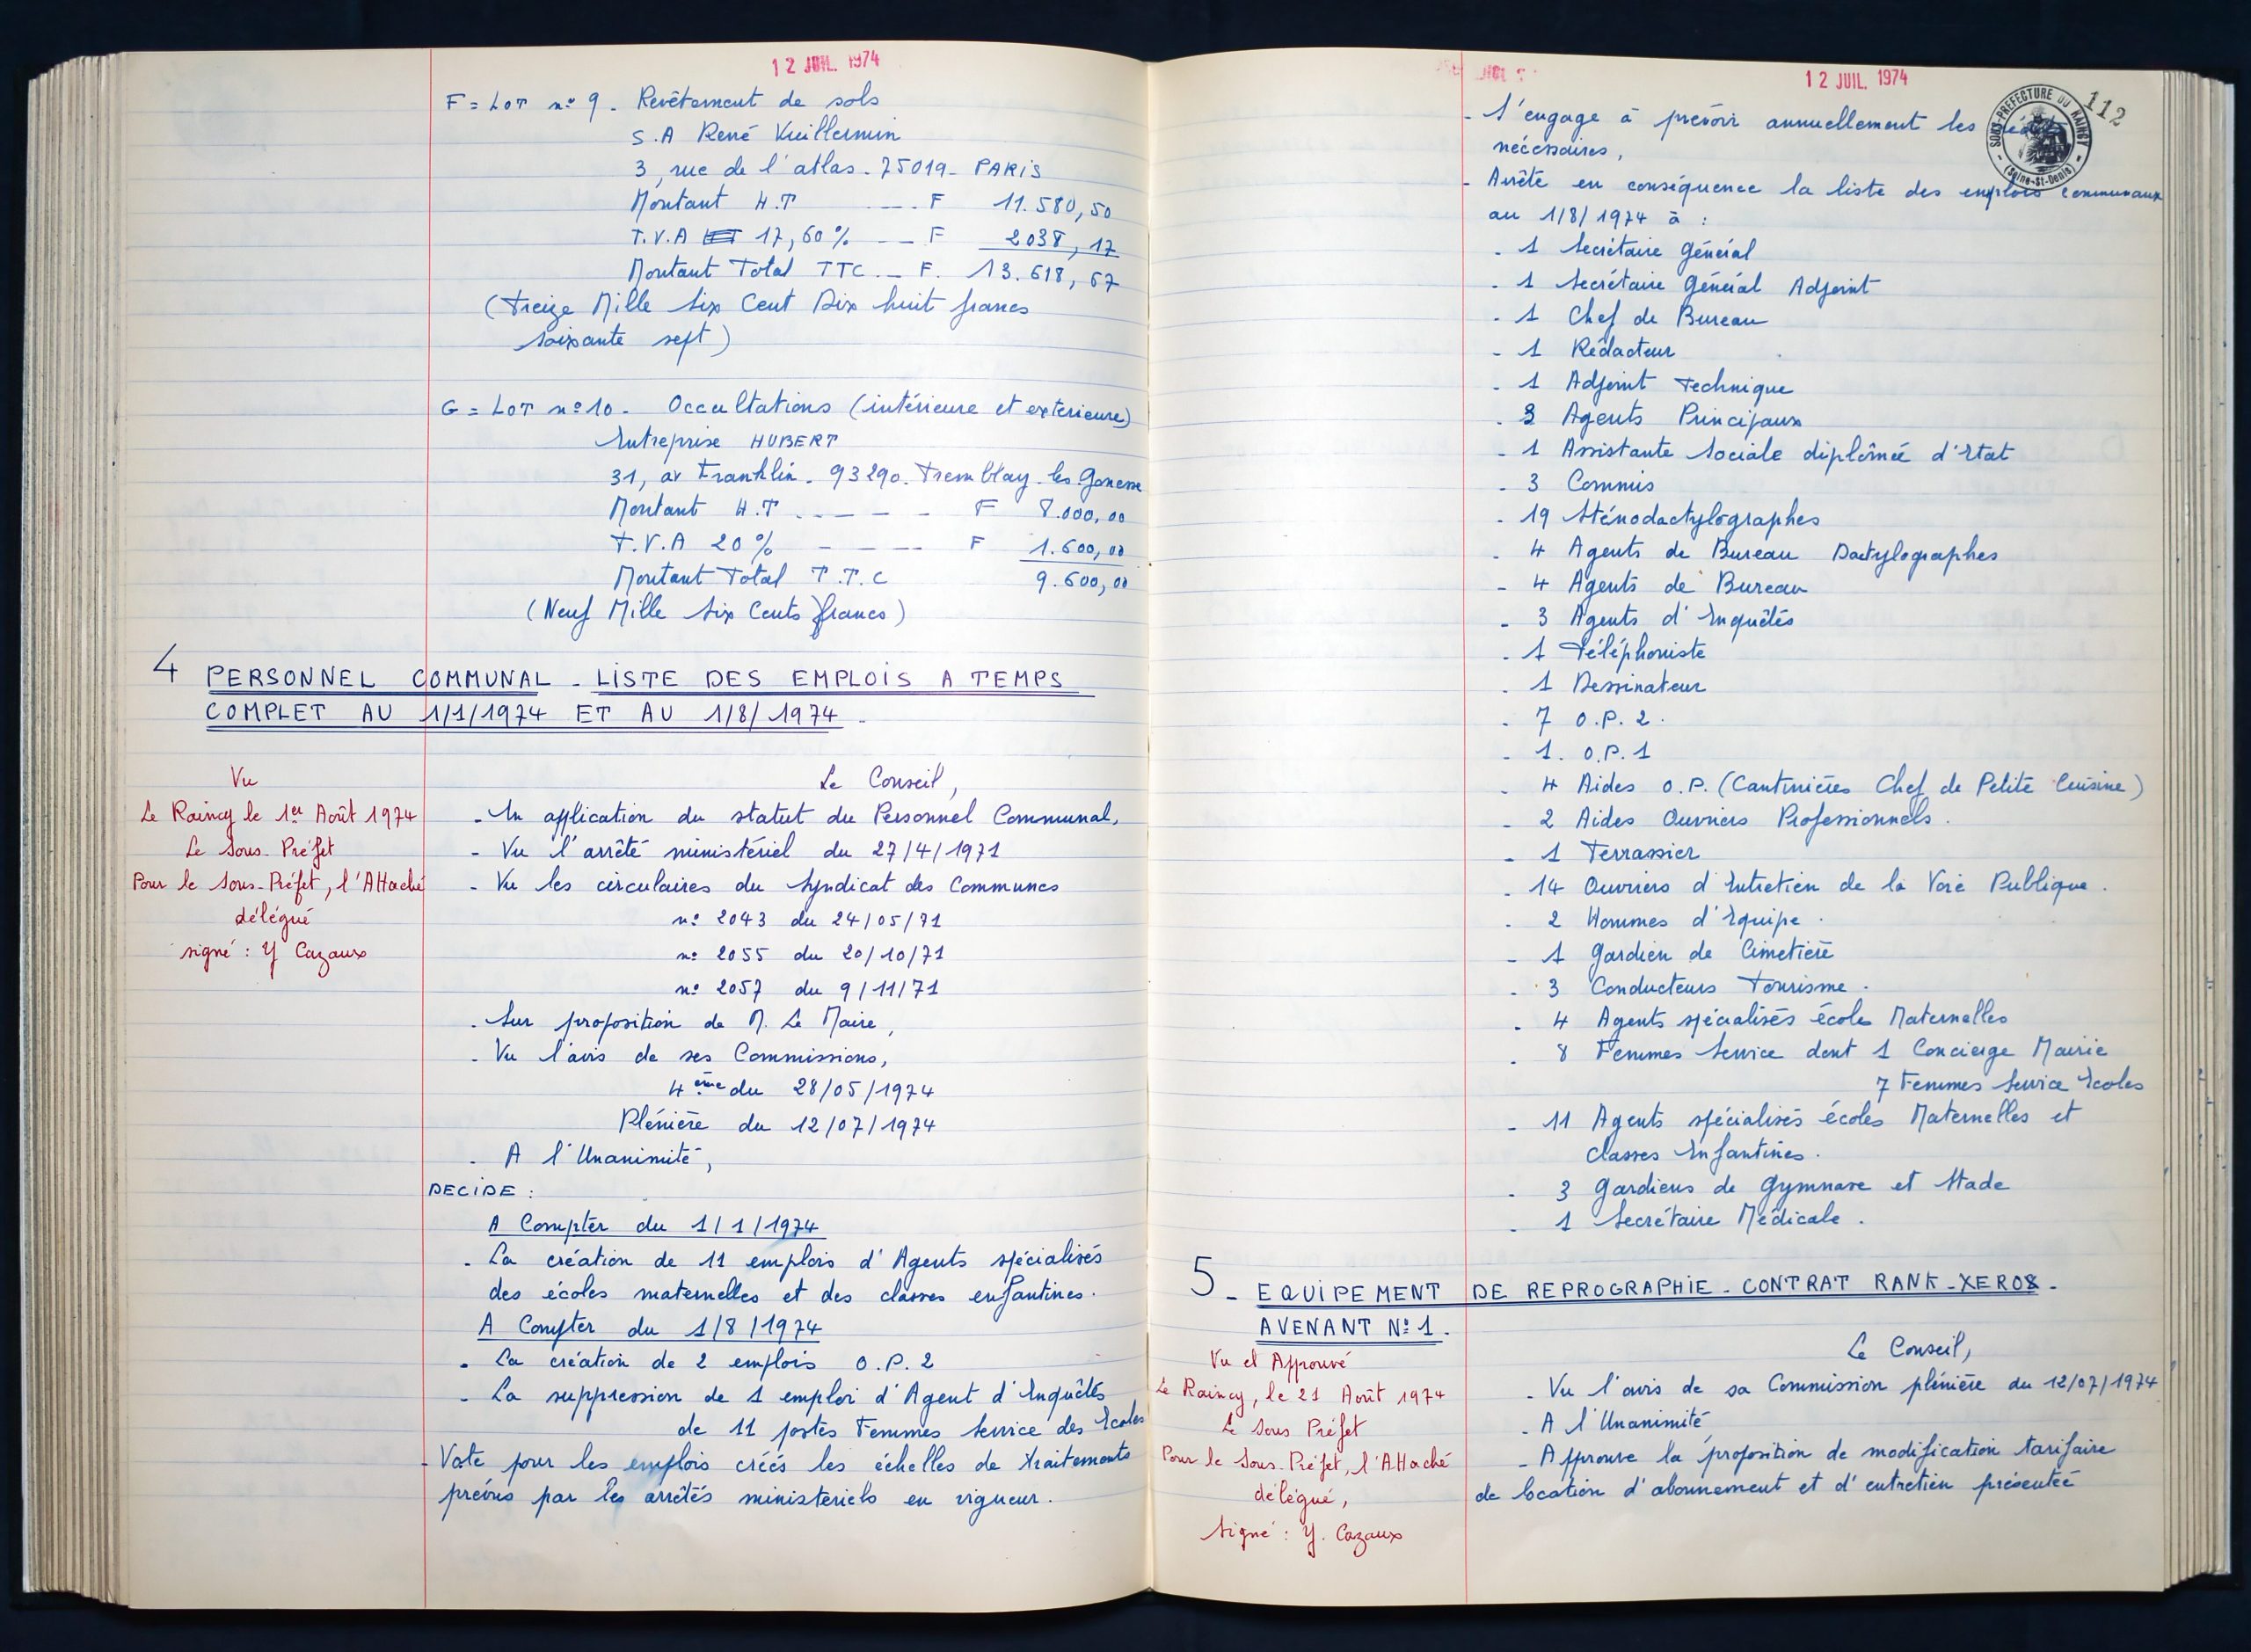 12 JUIL. 1974
F = LOT n° 9 - Revêtement de sols
S.A René Vuillermin
3, rue de l'atlas - 75019 - PARIS
Montant H.T F 11.580,50
T.V.A 17,60 % F 2038,17
Montant Total TTC F. 13.618,67
(Treize Mille Six Cent Dix huit francs
soixante sept)
G = LOT n° 10 - Occultations (intérieure et exterieure)
Entreprise HUBERT
31, av Franklin - 93290 - Tremblay-les-Gonesse
Montant H.T F 8.000,00
T.V.A 20 % F 1.600,00
Montant Total T.T.C 9.600,00
(Neuf Mille Six Cents francs)
4 PERSONNEL COMMUNAL - LISTE DES EMPLOIS A TEMPS
COMPLET AU 1/1/1974 ET AU 1/8/1974 -
Vu
Le Raincy le 1er Août 1974
Le Sous-Préfet
Pour le Sous-Préfet, l'Attaché
délégué
signé : Y Cazaux
Le Conseil,
- En application du statut du Personnel Communal,
- Vu l'arrêté ministériel du 27/4/1971
- Vu les circulaires du Syndicat des Communes
n° 2043 du 24/05/71
n° 2055 du 20/10/71
n° 2057 du 9/11/71
- Sur proposition de M. Le Maire,
- Vu l'avis de ses Commissions,
4ème du 28/05/1974
Plénière du 12/07/1974
- A l'Unanimité,
DECIDE :
A Compter du 1/1/1974
- La création de 11 emplois d'Agents spécialisés
des écoles maternelles et des classes enfantines.
A Compter du 1/8/1974
- La création de 2 emplois O.P.2
- La suppression de 1 emploi d'Agent d'Enquêtes
de 11 postes Femmes Service des Ecoles
- Vote pour les emplois créés les échelles de traitements
prévus par les arrêtés ministériels en vigueur.
12 JUIL. 1974
112
SOUS-PREFECTURE DU RAINCY
(Seine-St-Denis)
- S'engage à prévoir annuellement les
nécessaires,
- Arrête en conséquence la liste des emplois communaux
au 1/8/1974 à :
- 1 Secrétaire Général
- 1 Secrétaire Général Adjoint
- 1 Chef de Bureau
- 1 Rédacteur
- 1 Adjoint Technique
- Agents Principaux
- 1 Assistante Sociale diplômée d'Etat
- 3 Commis
- 19 Sténodactylographes
- 4 Agents de Bureau Dactylographes
- 4 Agents de Bureau
- 3 Agents d'Enquêtés
- 1 Téléphoniste
- 1 Dessinateur
- 7 O.P.2.
- 1. O.P.1
- 4 Aides O.P. (Cantinières Chef de Petite Cuisine)
- 2 Aides Ouvriers Professionnels.
- 1 Terrassier
- 14 Ouvriers d'Entretien de la Voie Publique.
- 2 Hommes d'Equipe.
- 1 Gardien de Cimetière
- 3 Conducteurs Tourisme.
- 4 Agents spécialisés écoles Maternelles
- 8 Femmes Service dont 1 Concierge Mairie
7 Femmes Service Ecoles
- 11 Agents spécialisés écoles Maternelles et
classes Enfantines.
- 3 Gardiens de Gymnase et Stade
- 1 Secrétaire Médicale.
5 - EQUIPEMENT DE REPROGRAPHIE - CONTRAT RANK-XEROX -
AVENANT N° 1.
Vu et Approuvé
Le Raincy, le 21 Août 1974
Le Sous Préfet
Pour le Sous-Préfet, l'Attaché
délégué,
Signé : Y. Cazaux
Le Conseil,
- Vu l'avis de sa Commission plénière du 12/07/1974
- A l'Unanimité
- Approuve la proposition de modification tarifaire
de location d'abonnement et d'entretien présentée